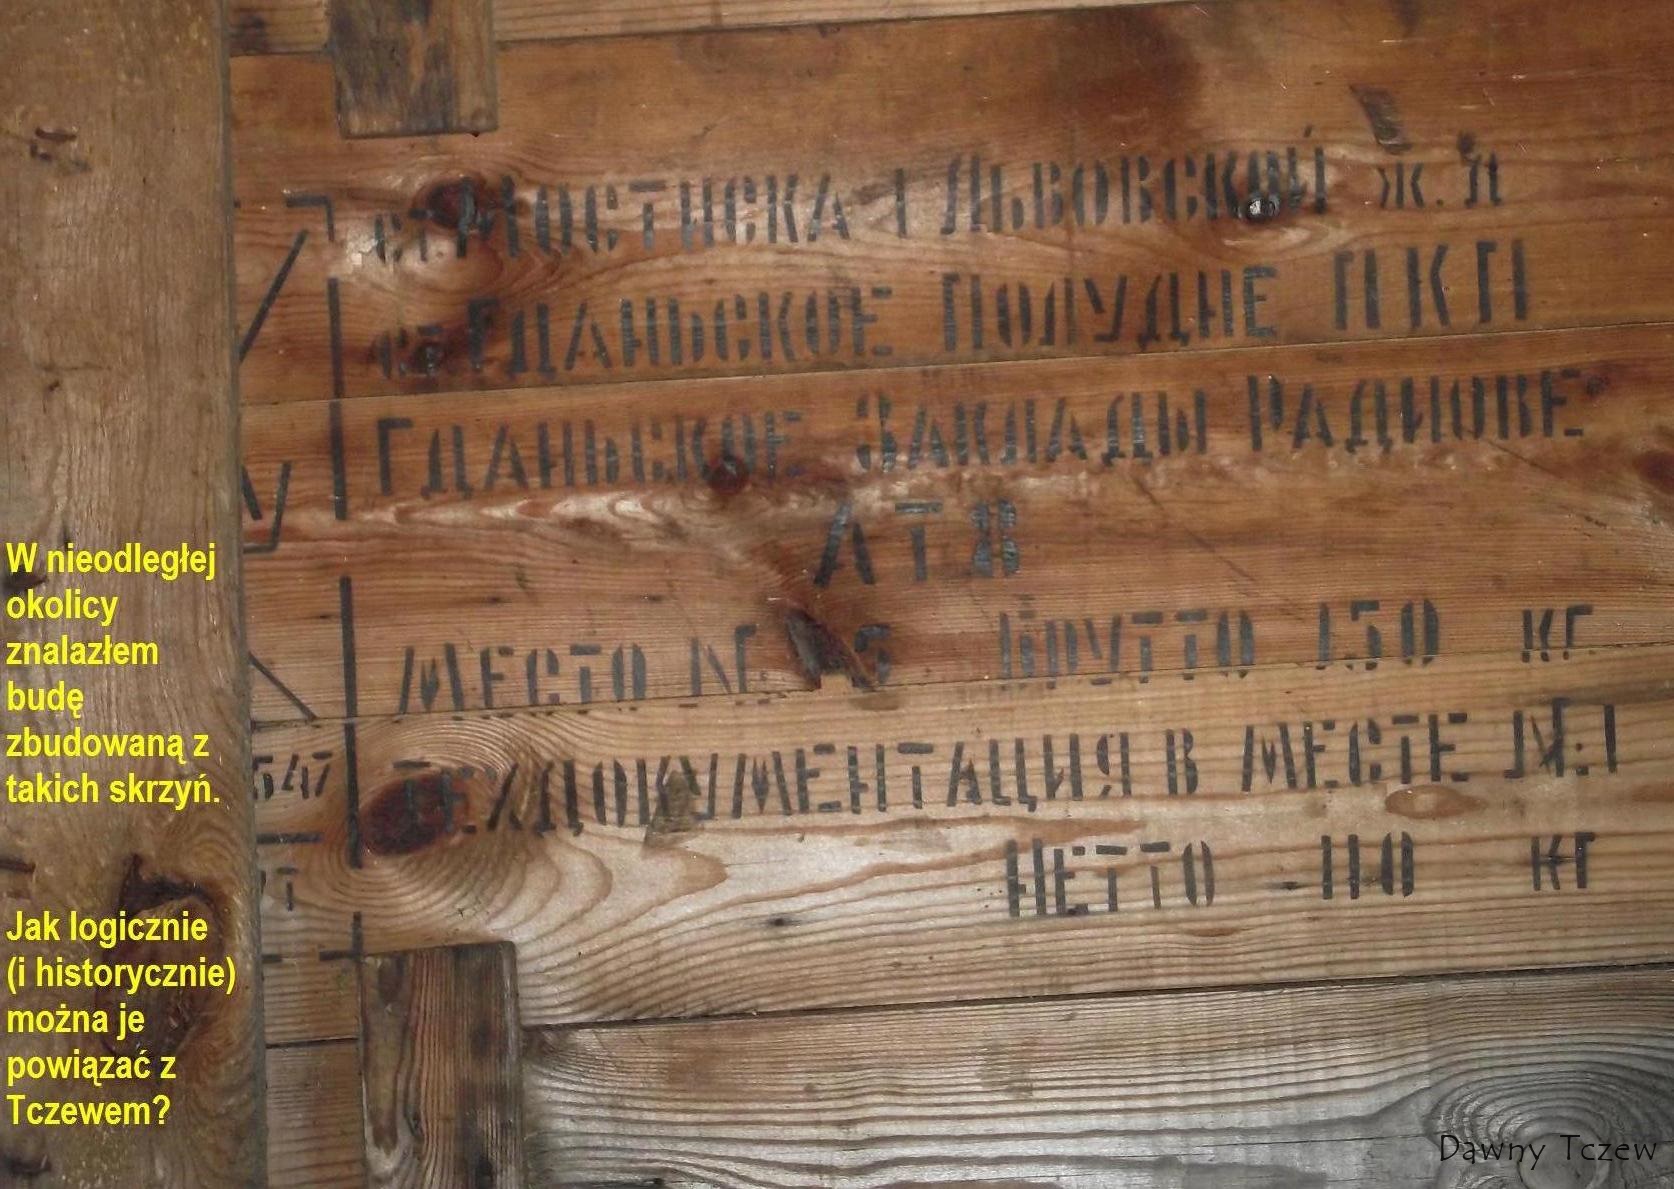 ст Мостиска 1 Львовской ж. д
ст Гданьское Полудне ПКП
Гданьское Заклады Радиове
АТЯ
Место № 5 Брутто 150 кг
Техдокументация в месте № 1
Нетто 110 кг
547
W nieodległej
okolicy
znalazłem
budę
zbudowaną z
takich skrzyń.
Jak logicznie
(i historycznie)
można je
powiązać z
Tczewem?
Dawny Tczew